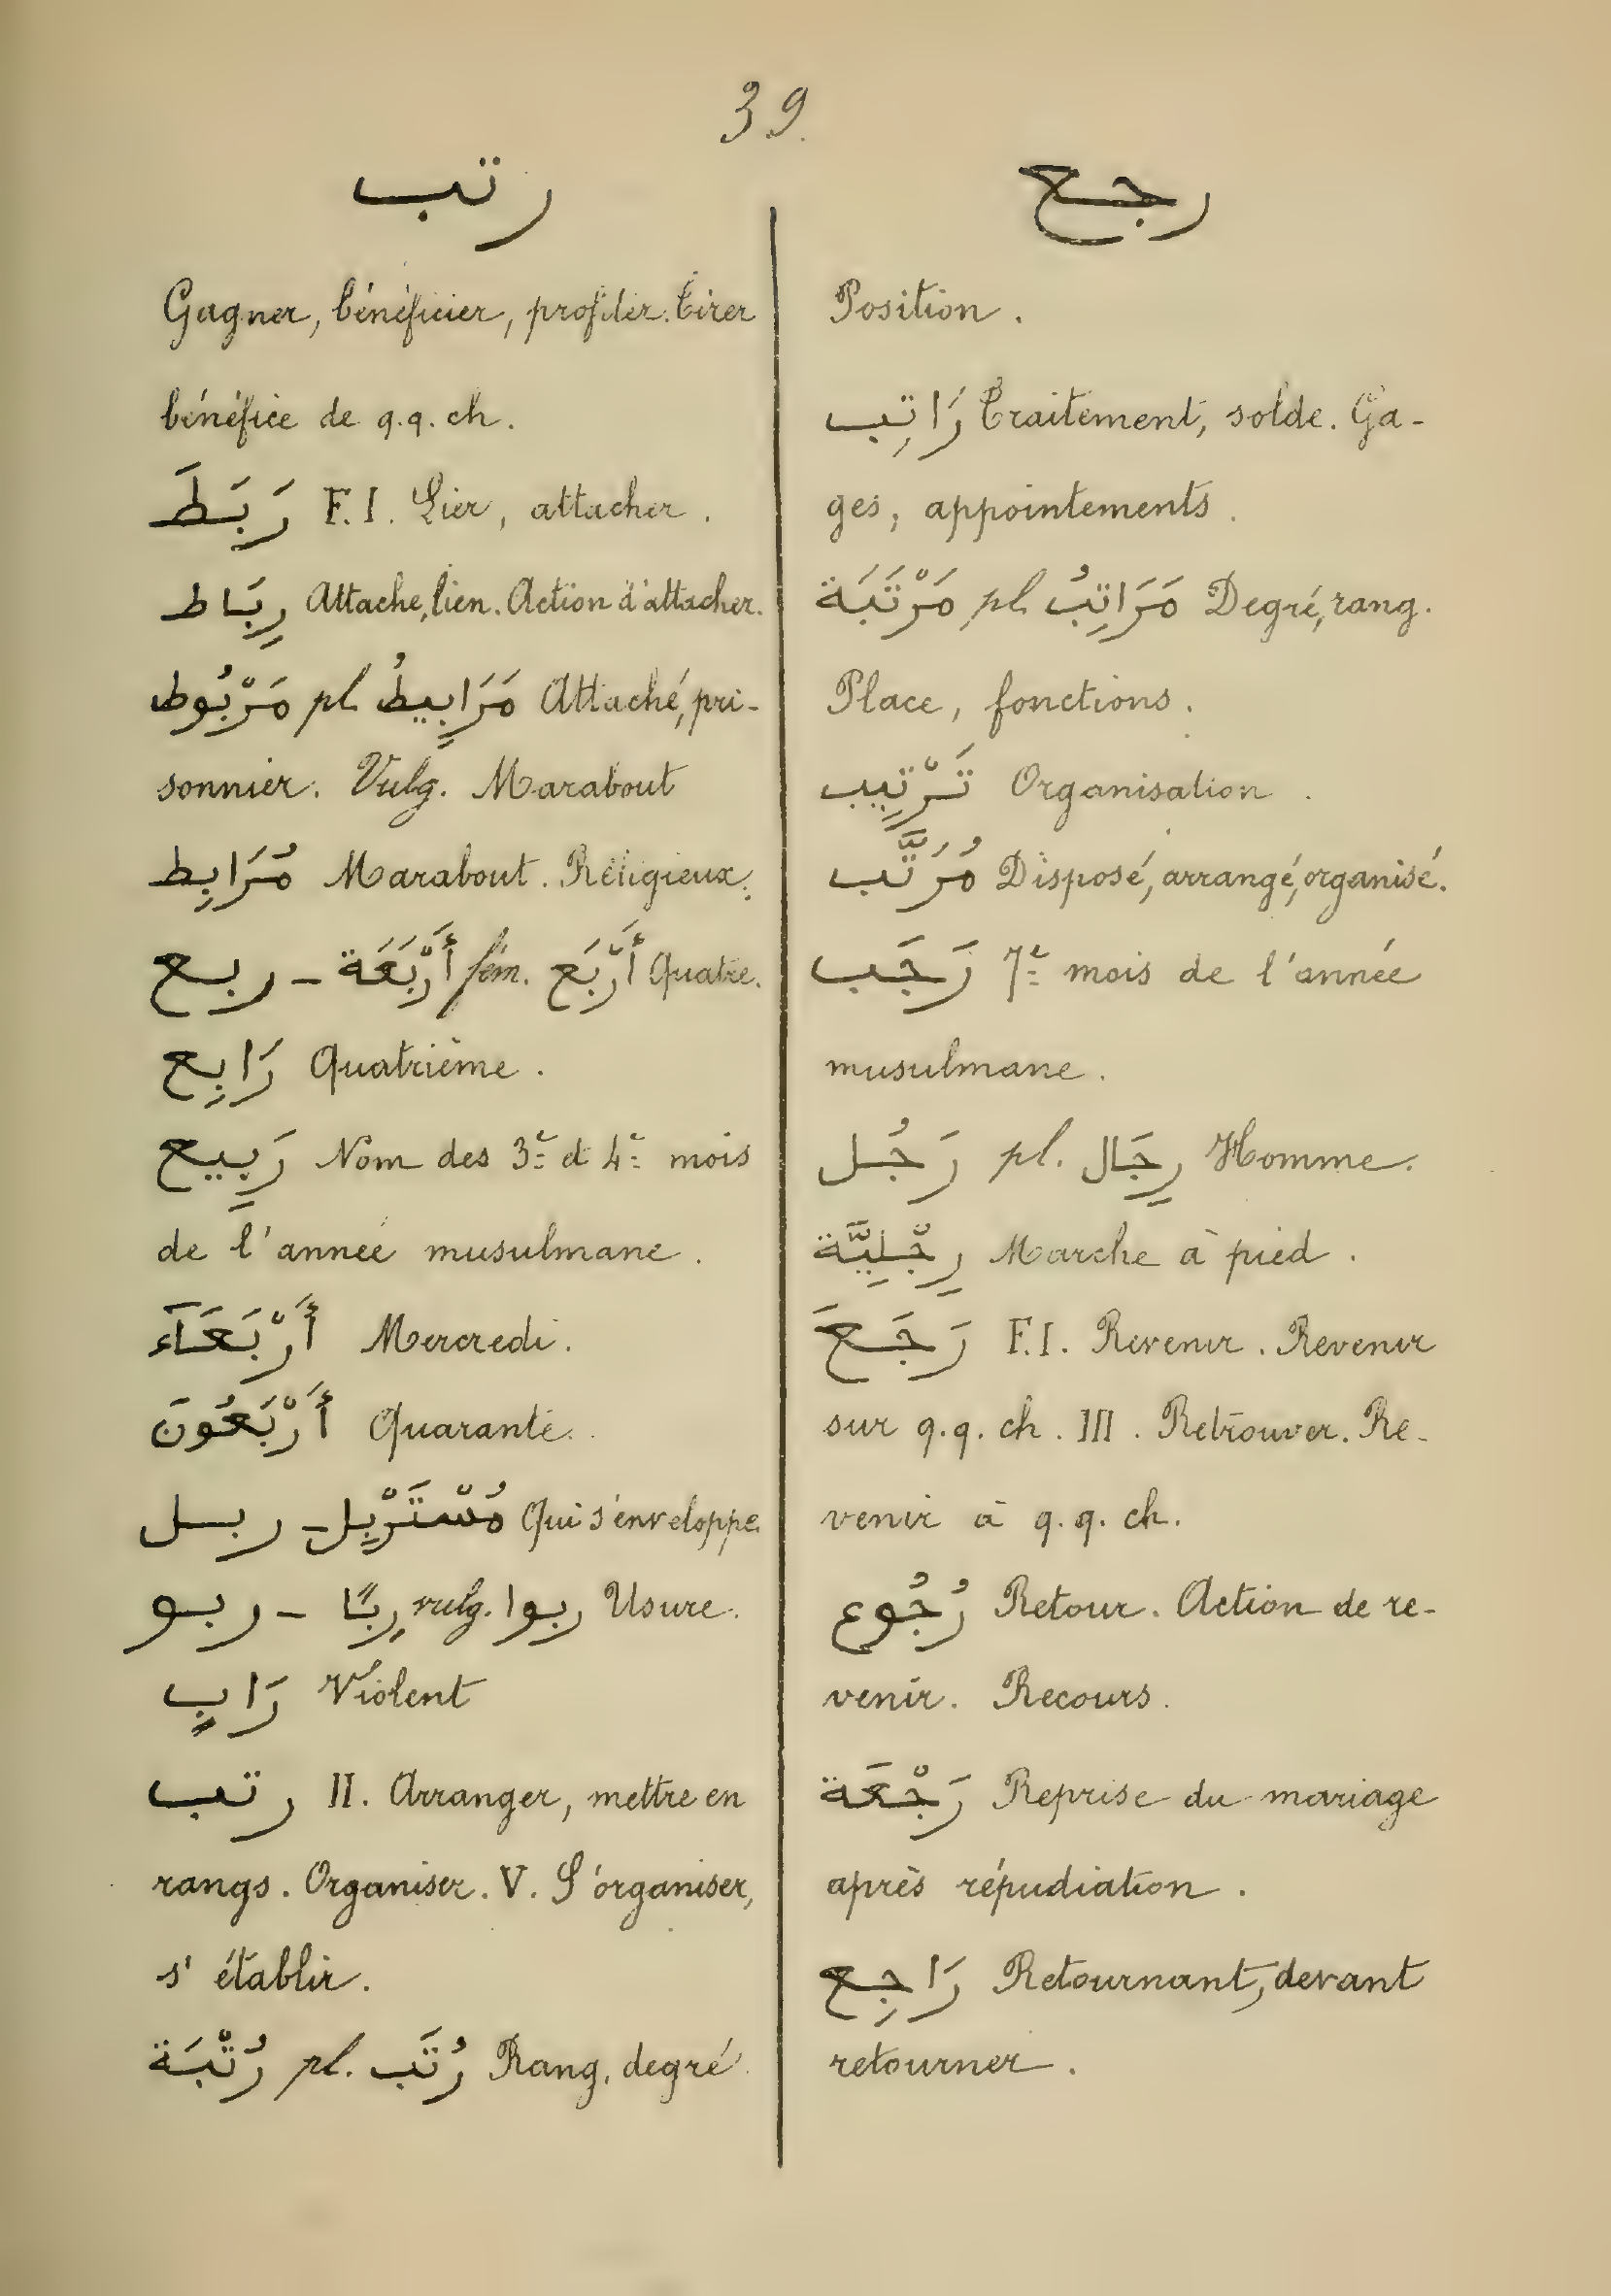 39.
رتب
Gagner, bénéficier, profiter. Tirer
bénéfice de q.q. ch.
رَبَطَ F. I. Lier, attacher.
رِبَاط Attache, lien. Action d'attacher.
مَرْبُوط pl. مَرَابِيطُ Attaché, pri-
sonnier. Vulg. Marabout
مُرَابِط Marabout. Religieux.
ربع – أَرْبَعَة fém. أَرْبَع Quatre.
رَابِع Quatrième.
رَبِيع Nom des 3e et 4e mois
de l'année musulmane.
أَرْبَعَآء Mercredi.
أَرْبَعُونَ Quarante.
ربل – مُسْتَرْبِل Qui s'enveloppe.
ربو – رِبًا vulg. ربوا Usure.
رَابٍ Violent
رتب II. Arranger, mettre en
rangs. Organiser. V. S'organiser,
s'établir.
رُتْبَة pl. رُتَب Rang, degré.
رجع
Position.
رَاتِب Traitement, solde. Ga-
ges, appointements.
مَرْتَبَة pl. مَرَاتِبُ Degré, rang.
Place, fonctions.
تَرْتِيب Organisation.
مُرَتَّب Disposé, arrangé, organisé.
رَجَب 7e mois de l'année
musulmane.
رَجُل pl. رِجَال Homme.
رِجْلِيَّة Marche à pied.
رَجَعَ F. I. Revenir. Revenir
sur q.q. ch. III. Retrouver. Re-
venir à q.q. ch.
رُجُوع Retour. Action de re-
venir. Recours.
رَجْعَة Reprise du mariage
après répudiation.
رَاجِع Retournant, devant
retourner.